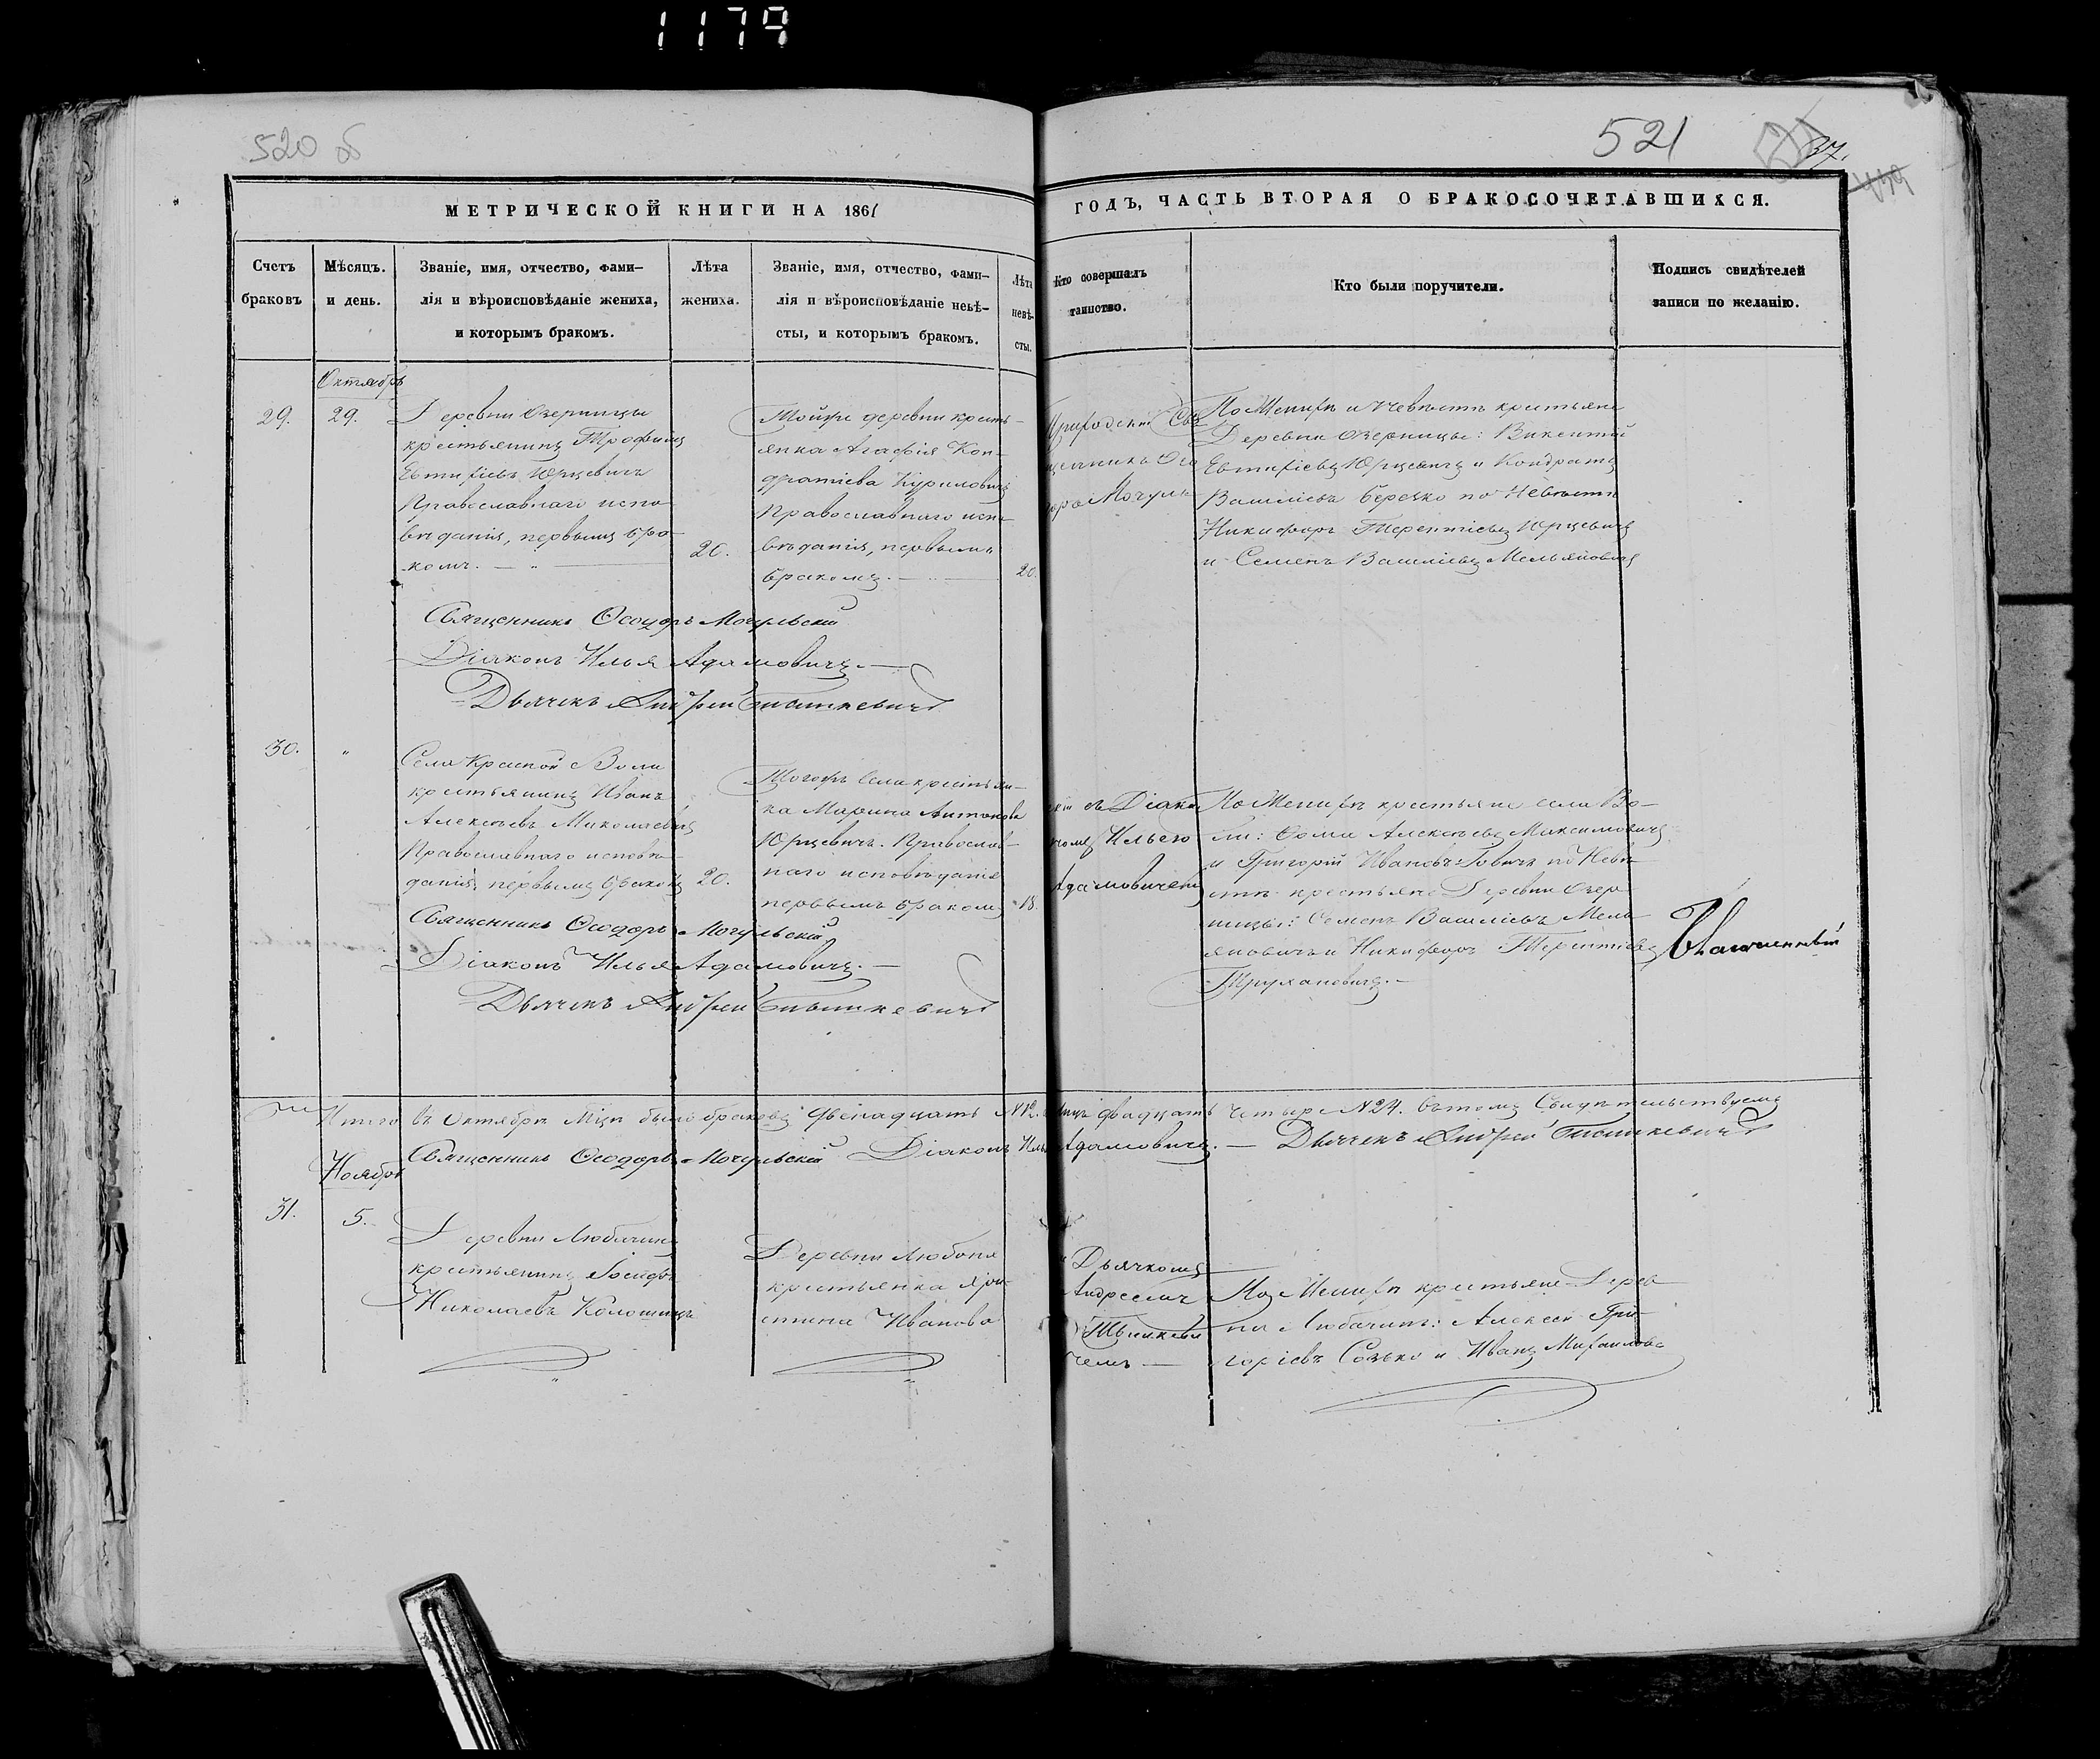 1179
520 об
521
37.
МЕТРИЧЕСКОЙ КНИГИ НА 1861
ГОДЪ, ЧАСТЬ ВТОРАЯ О БРАКОСОЧЕТАВШИХСЯ.
Счетъ браковъ
Мѣсяцъ. и день.
Званіе, имя, отчество, фами-
лія и вѣроисповѣданіе жениха,
и которымъ бракомъ.
Лѣта жениха.
Званіе, имя, отчество, фами-
лія и вѣроисповѣданіе невѣ-
сты, и которымъ бракомъ.
Лѣта невѣ-
сты.
Кто совершалъ таинство.
Кто были поручители.
Подпись свидѣтелей
записи по желанію.
Октябрь
29. 29.
Деревни Озерницы
крестьянинъ Трофимъ
Евтихіевъ Юрцевичъ
Православнаго испо-
вѣданія, первымъ бра-
комъ.
20.
Тойже деревни кресть-
янка Агафія Кон-
дратіева Куриловичъ
Православнаго испо-
вѣданія, первымъ
бракомъ.
20.
Приходскій Свя
щенникъ Ѳео
доръ Мочуль
По Женихѣ и Невѣстѣ крестьяне
Деревни Озерницы: Викентій
Евтихіевъ Юрцевичъ и Кондратъ
Василіевъ Березко по Невѣстѣ
Никифоръ Терентіевъ Юрцевичъ
и Семенъ Василіевъ Мельяновичъ
Священникъ Ѳеодоръ Мочульскій
Діаконъ Илья Адамовичъ.
Дьячекъ Андрей
30. "
Села Красной Воли
крестьянинъ Иванъ
Алексѣевъ Миколаевичъ
Православнаго исповѣ-
данія, первымъ бракомъ
20.
Тогожъ Села крестьян-
ка Марина Антонова
Юрцевичъ. Православ-
наго исповѣданія
первымъ бракомъ
18.
скій съ Діако
номъ Ильею
Адамовичемъ
По Женихѣ крестьяне села Во-
ли: Ѳома Алексѣевъ Максимовичъ
и Григорій Ивановъ Говичъ по Невѣ-
стѣ крестьяне Деревни Озер-
ницы: Семенъ Василіевъ Мель-
яновичъ и Никифоръ Терентіевъ
Трухановичъ.
Священникъ Ѳеодоръ Мочульскій
Діаконъ Илья Адамовичъ.
Дьячекъ Андрей
Итого въ Октябрѣ Мцѣ было браковъ двенадцать N 12. лицъ двадцать четыре N 24. въ томъ Свидѣтельствуемъ
Священникъ Ѳеодоръ Мочульскій Діаконъ Илья Адамовичъ. Дьячекъ Андрей
Ноябрь
31. 5.
Деревни Любачинъ
крестьянинъ Іосифъ
Николаевъ Колошицъ
Деревни Любоня
крестьянка Хри-
стина Иванова
и Дьячкомъ
Андреемъ
По Женихѣ крестьяне Дерев-
ни Любачинъ: Алексѣй Гри-
горіевъ Созько и Иванъ Михайловъ